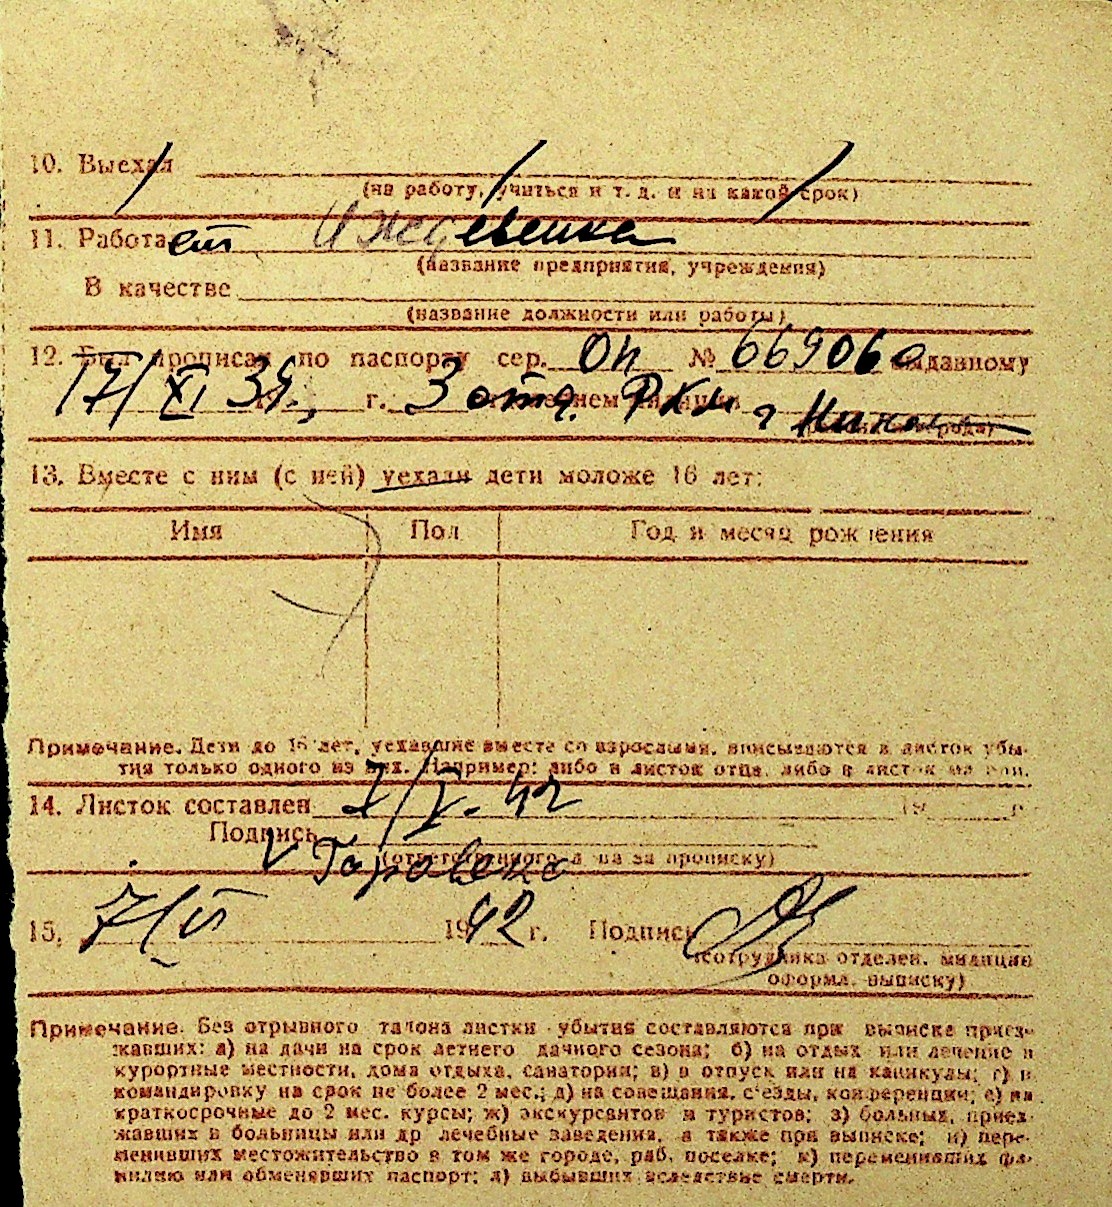 10. Выехал
(на работу, учиться и т. д. и на какой срок)
11. Работает Иждевенка
(название предприятия, учреждения)
В качестве
(название должности или работы)
12. Был прописан по паспорту сер. ОП № 669060 выданному
17/XI 39., г. 3 отд. РКМ г
13. Вместе с ним (с ней) уехали дети моложе 16 лет:
Имя Пол Год и месяц рождения
Примечание. Дети до 16 лет, уехавшие вместе со взрослыми, вписываются в листок убы-
тия только одного из них. Например: либо в листок отца, либо в листок матери.
14. Листок составлен 7/V. 42 19 г.
Подпись
(ответственного л-ца за прописку)
15. 7/V 1942 г. Подпись
(сотрудника отделен. милиции
оформл. выписку)
Примечание. Без отрывного талона листки убытия составляются при выписке приез-
жавших: а) на дачи на срок летнего дачного сезона; б) на отдых или лечение в
курортные местности, дома отдыха, санатории; в) в отпуск или на каникулы; г) в
командировку на срок не более 2 мес.; д) на совещания, съезды, конференции; е) на
краткосрочные до 2 мес. курсы; ж) экскурсантов и туристов; з) больных, приез-
жавших в больницы или др лечебные заведения, а также при выписке; и) пере-
менивших местожительство в том же городе, раб. поселке; к) переменивших фа-
милию или обменявших паспорт; л) выбывших вследствие смерти.